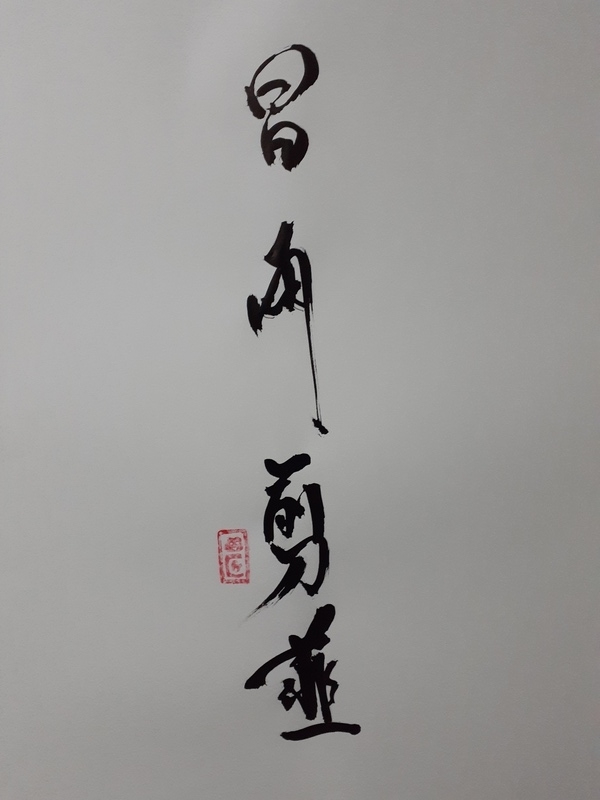 冒雨剪韮